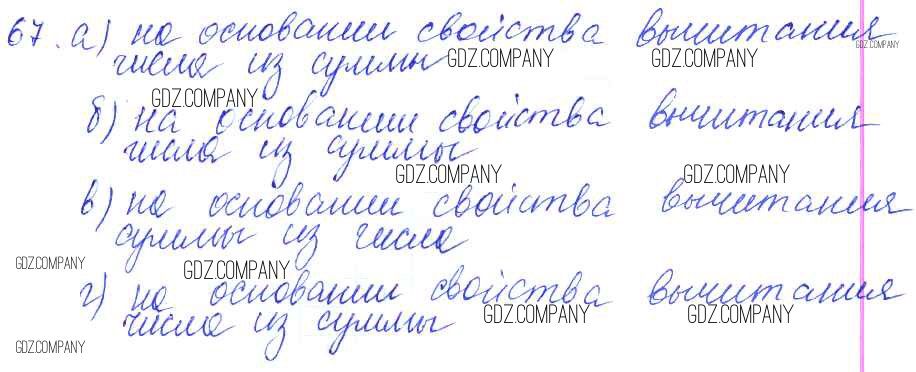 67. а) на основании свойства вычитания
числа из суммы GDZ.COMPANY GDZ.COMPANY GDZ.COMPANY
GDZ.COMPANY
б) на основании свойства вычитания
числа из суммы
GDZ.COMPANY GDZ.COMPANY
в) на основании свойства вычитания
суммы из числа
GDZ.COMPANY GDZ.COMPANY
г) на основании свойства вычитания
числа из суммы GDZ.COMPANY GDZ.COMPANY
GDZ.COMPANY